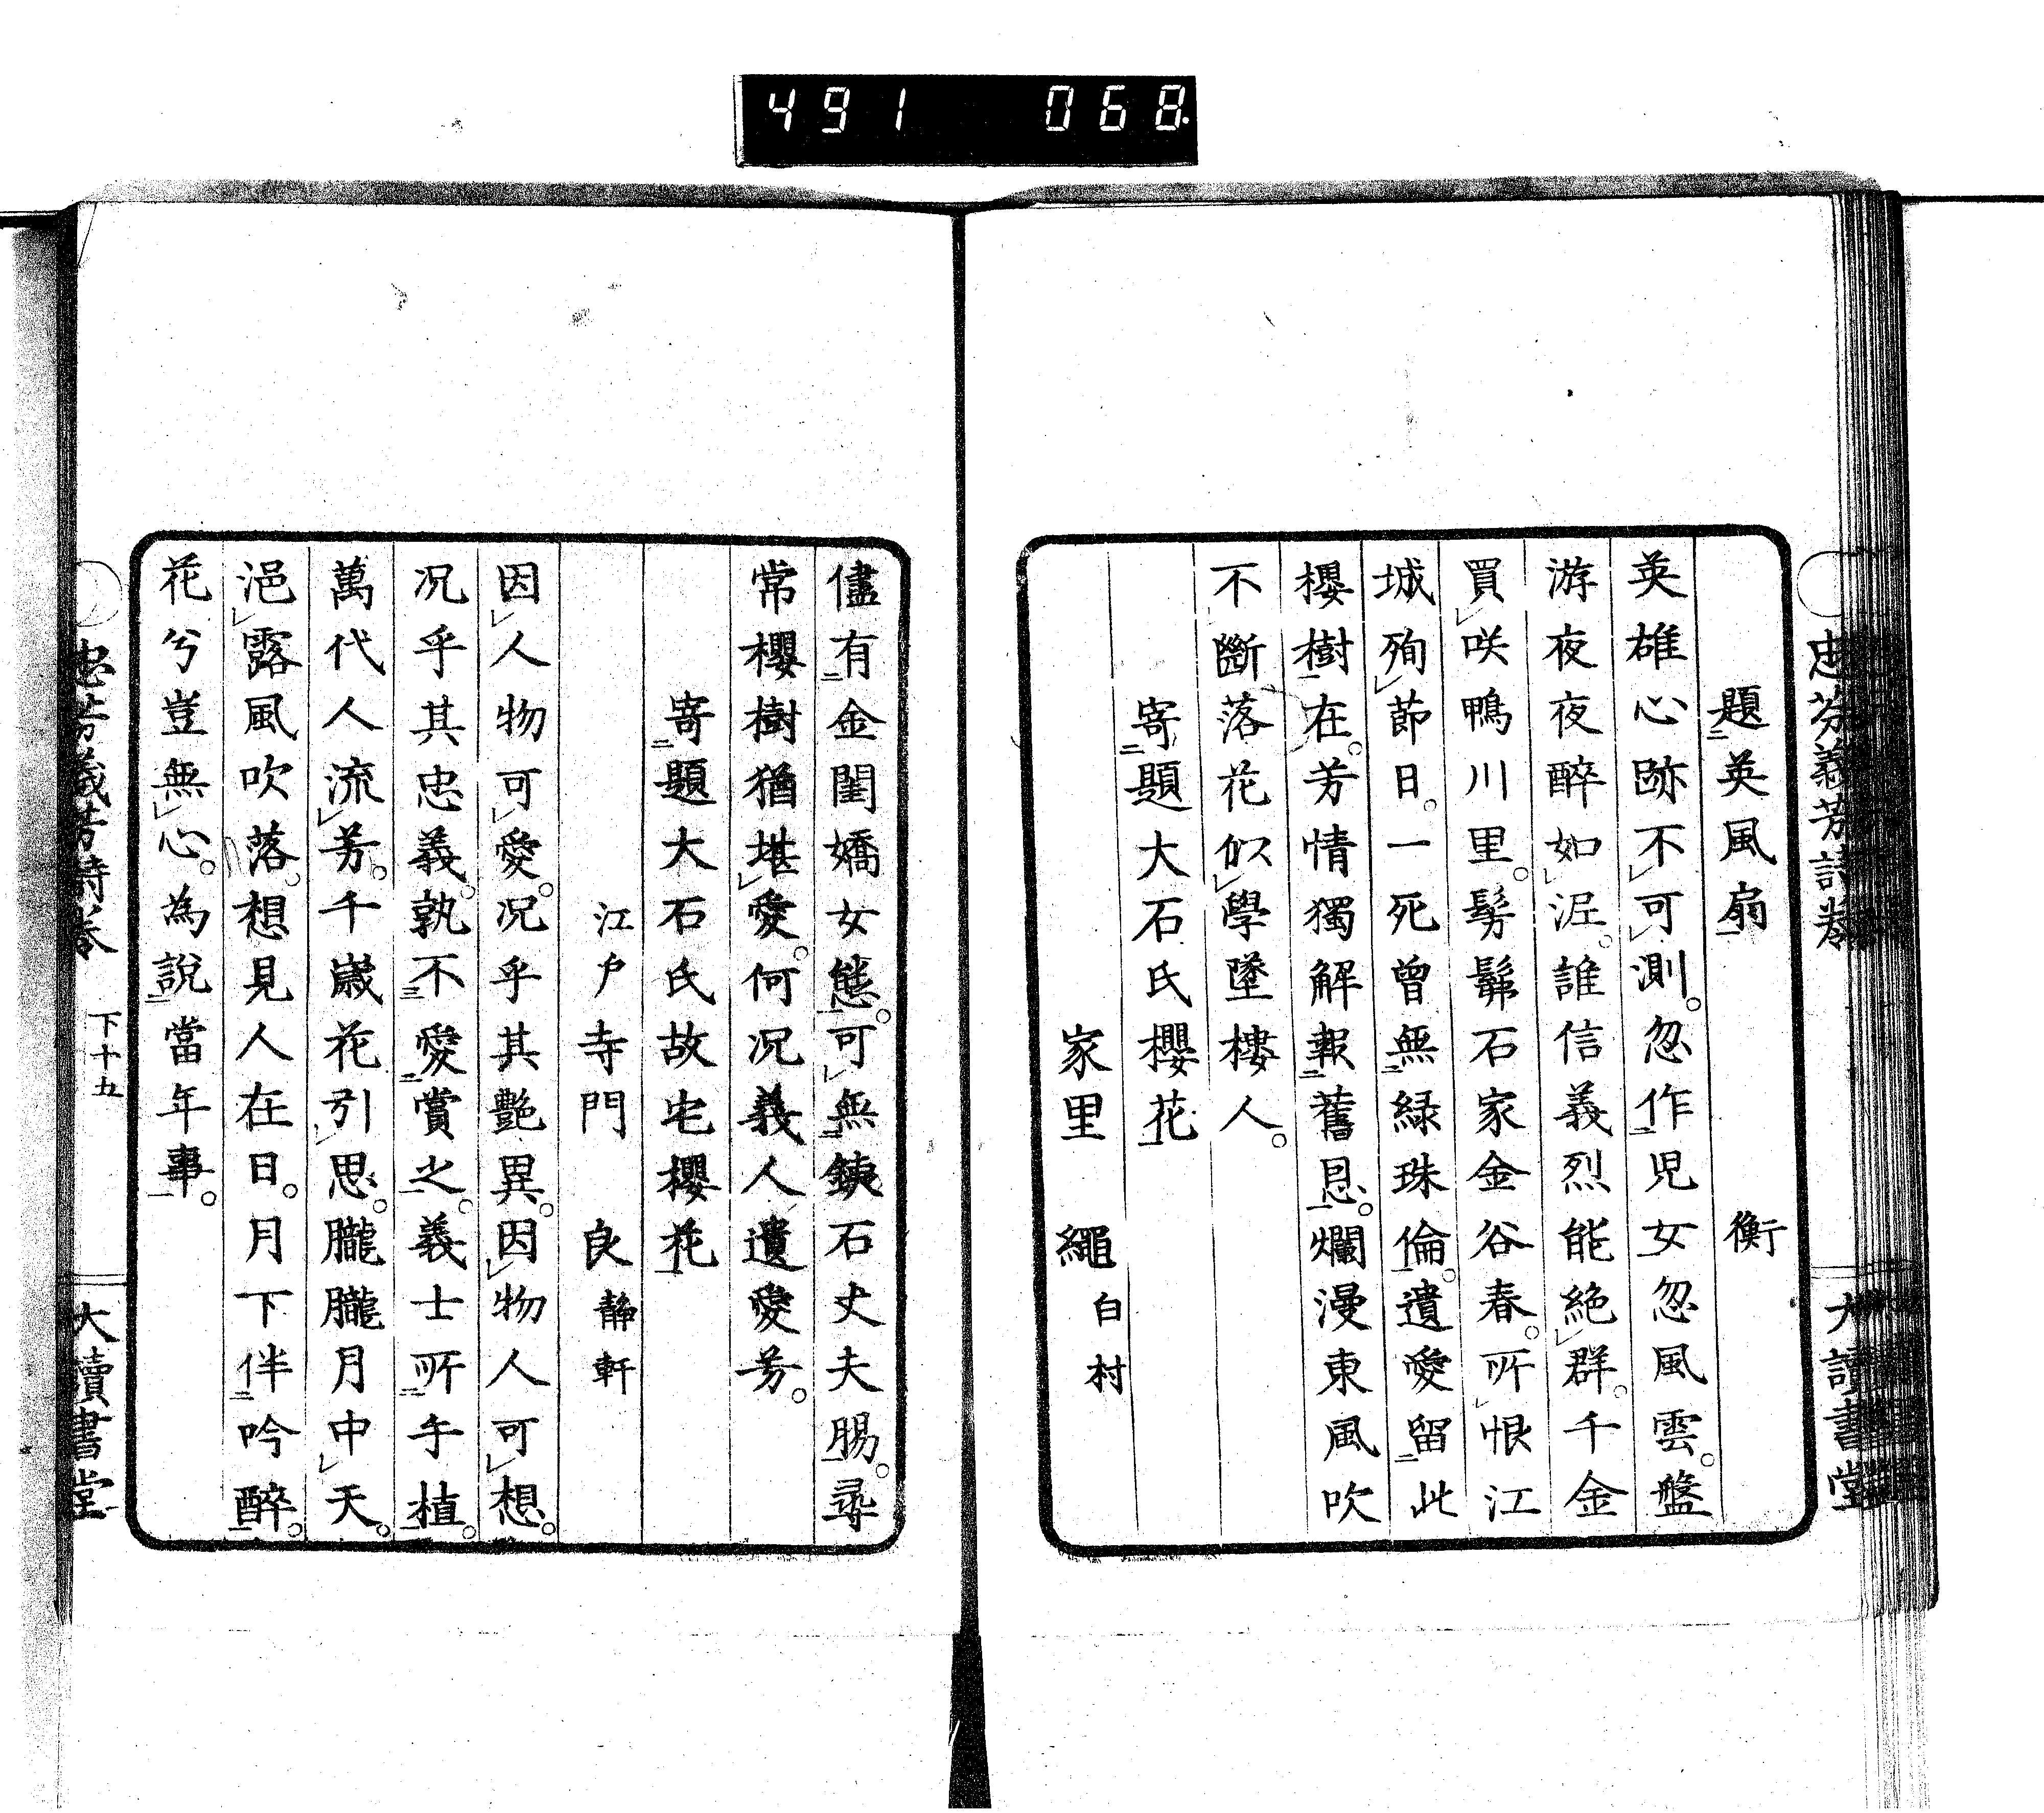 491 068
忠芬義芳詩巻
大讀書堂
題英風扇 衡
英雄心跡不可測。忽作児女忽風雲。盤
游夜夜醉如泥。誰信義烈能絶群。千金
買咲鴨川里。髣髴石家金谷春。所恨江
城殉節日。一死曾無緑珠倫。遺愛留此
櫻樹在。芳情獨解報舊恩。爛漫東風吹
不斷落花似學墜樓人。
寄題大石氏櫻花
家里 繩白村
儘有金閨嬌女態。可無鋏石丈夫腸。尋
常櫻樹猶堪愛。何況義人遺愛芳。
寄題大石氏故宅櫻花
江戸寺門 良靜軒
因人物可愛。況乎其艶異。因物人可想。
況乎其忠義。孰不愛賞之。義士所手植。
萬代人流芳。千歳花引思。朧朧月中天。
浥露風吹落。想見人在日。月下伴吟醉。
花兮豈無心。為説當年事。
忠芬義芳詩巻
下十五
大讀書堂